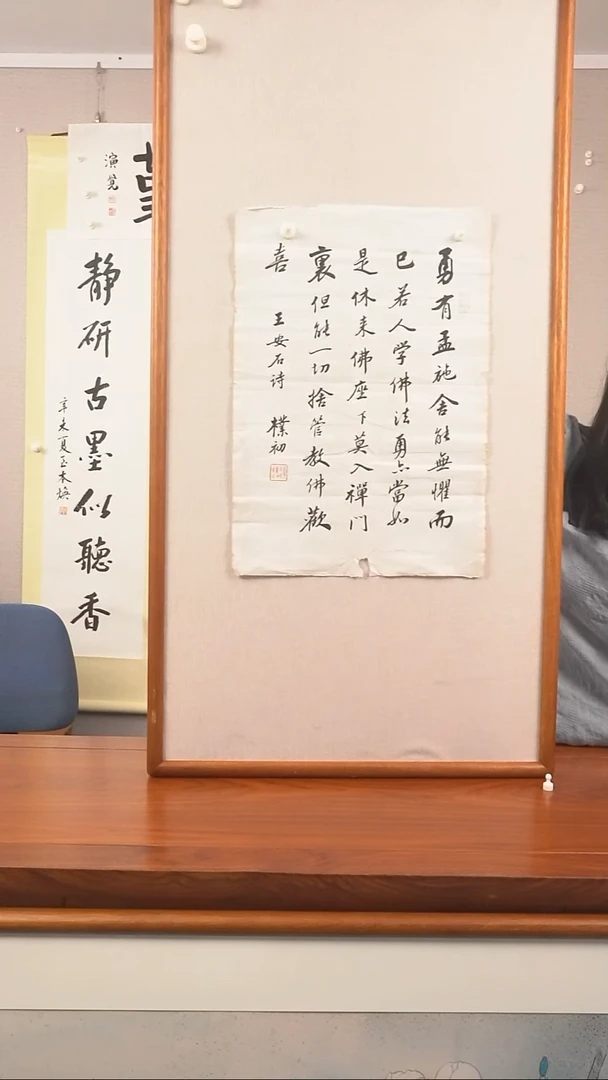 勇有孟施舍能無懼而
已若人学佛法勇亦當如
是休来佛座下莫入禪門
裏但能一切捨管教佛歡
喜
王安石诗 樸初
演覺
静研古墨似聽香
辛未夏玉木焕